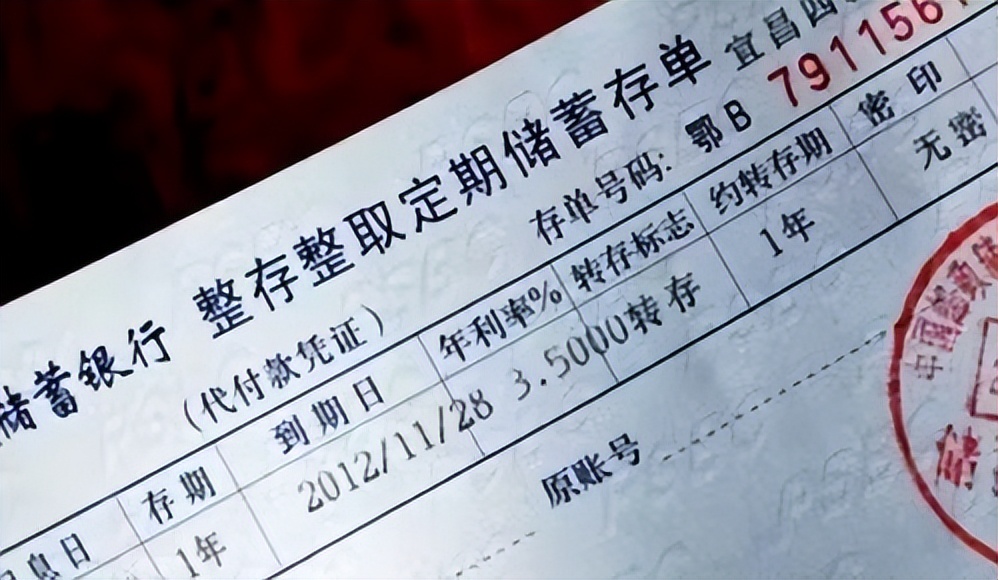 储蓄银行 整存整取定期储蓄存单 宜昌四
(代付款凭证) 存单号码: 鄂B 791156
息日 存期 到期日 年利率% 转存标志 约转存期 密印
1年 2012/11/28 3.5000 转存 1年 无密
原账号
中国邮政储